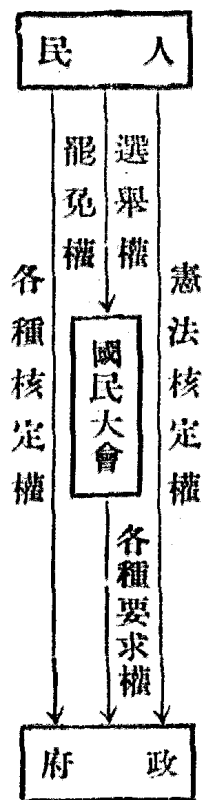 人民
憲法核定權
選舉權
罷免權
各種核定權
國民大會
各種要求權
政府